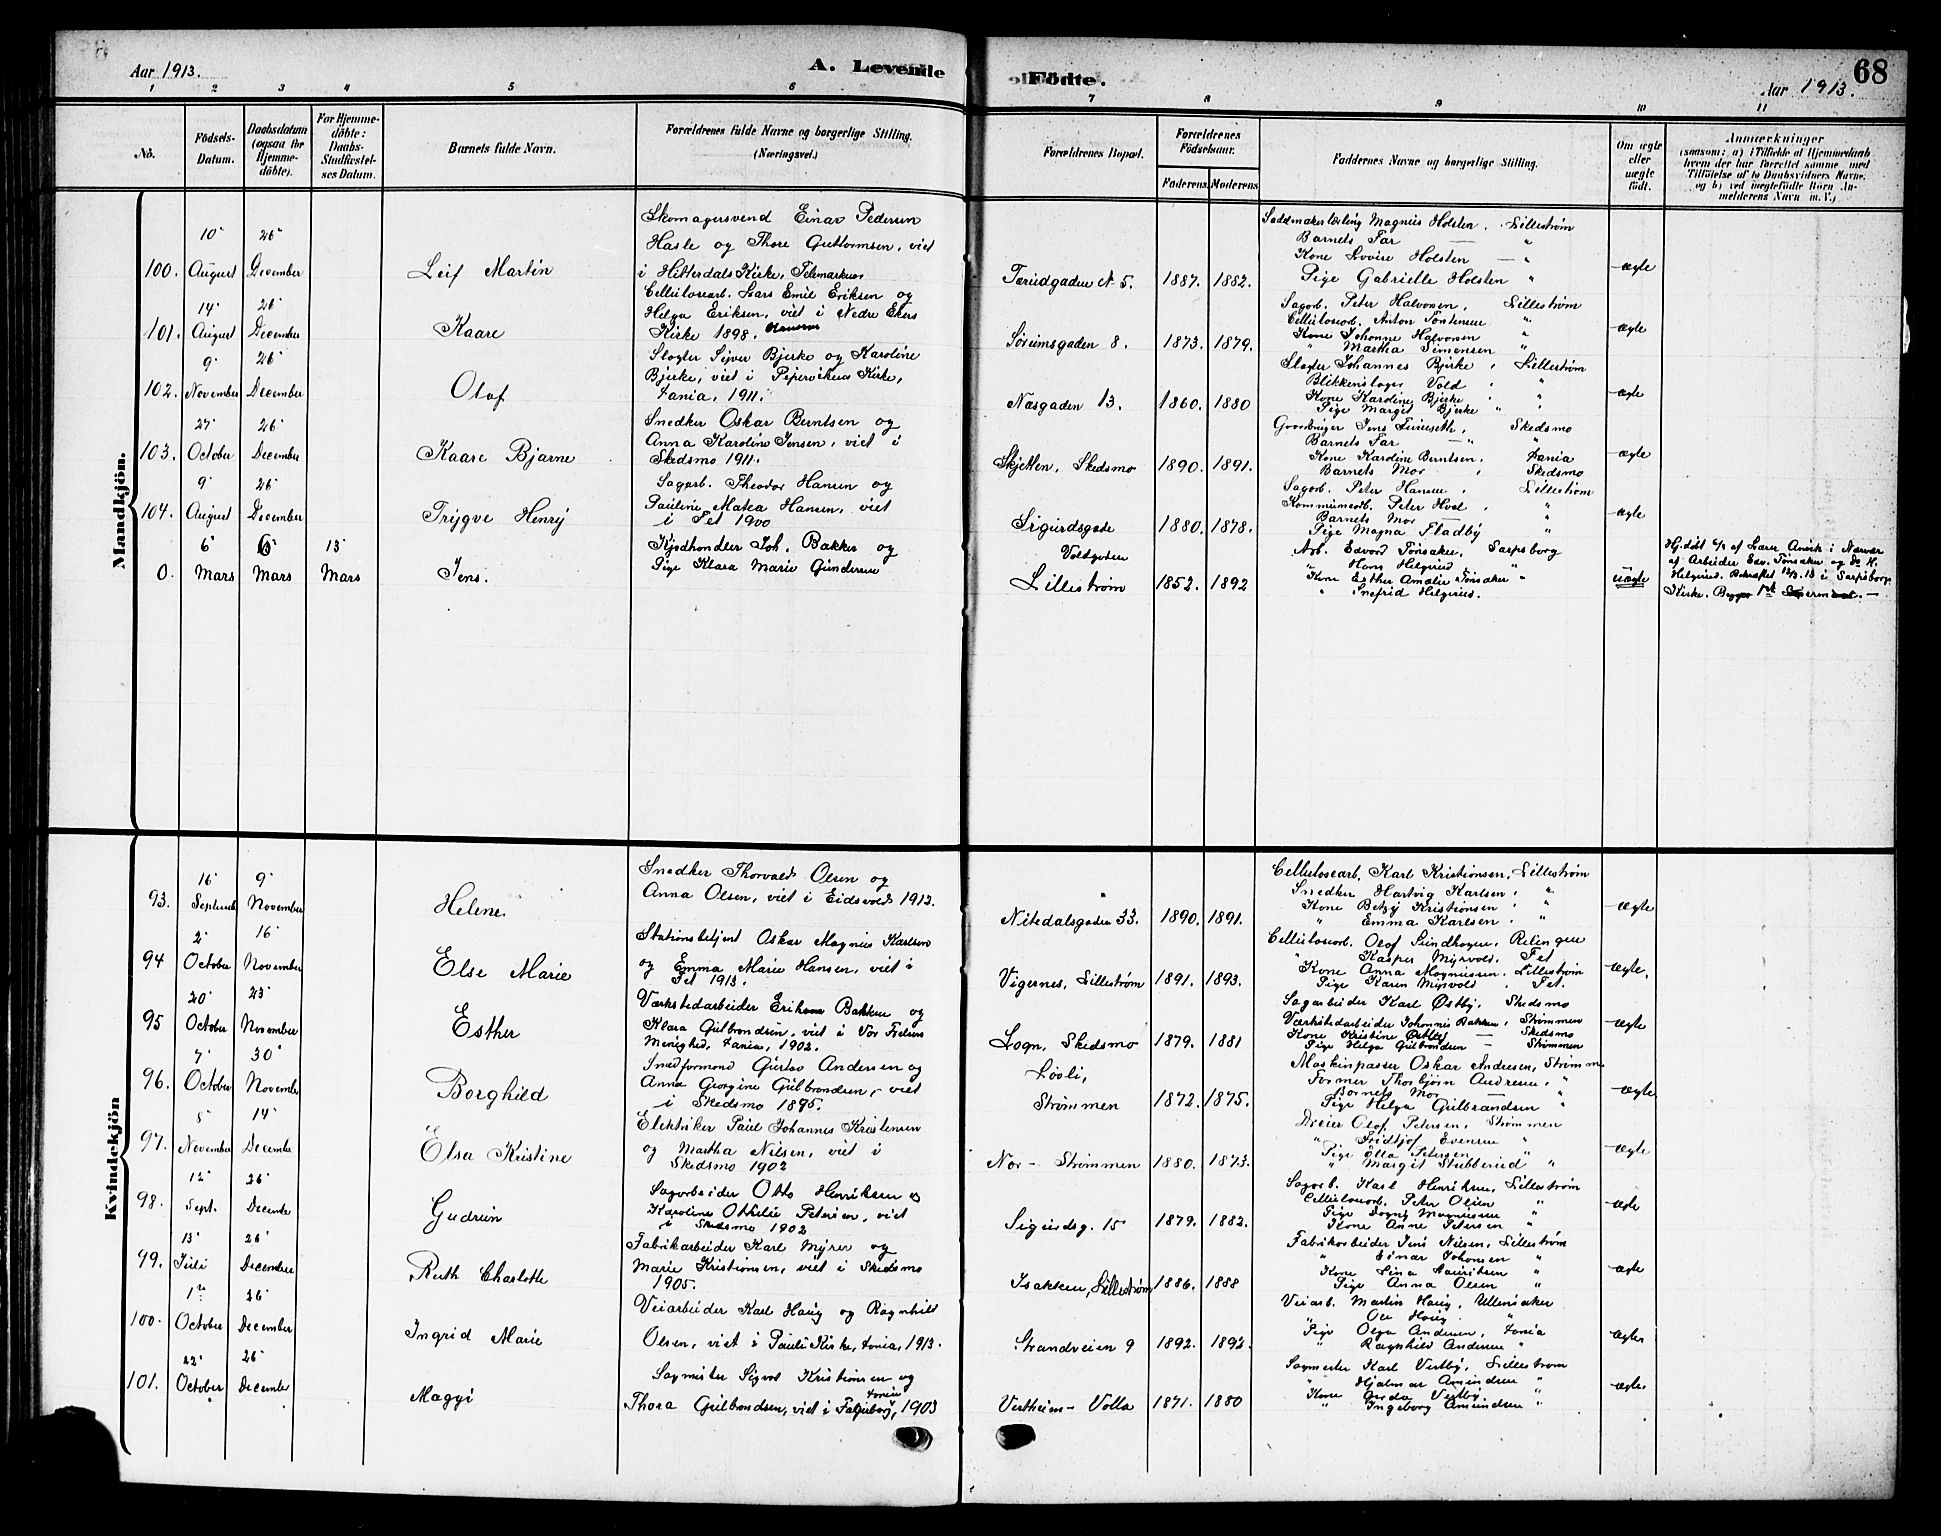 Aar 1913.
A. Levende
Födte.
68
Aar 1913.
1 2 3 4 5 6 7 8 9 10 11
No.
Födsels-
Datum.
Daabsdatum
(ogsaa for
Hjemme-
döbte).
For Hjemme-
döbte:
Daabs-
Stadfæstel-
ses Datum.
Barnets fulde Navn.
Forældrenes fulde Navne og borgerlige Stilling.
(Næringsvei.)
Forældrenes Bopæl.
Forældrenes
Födselsaar.
Faderens. Moderens
Faddernes Navne og borgerlige Stilling.
Om ægte
eller
uægte
födt.
Anmærkninger
(saasom: a) i Tilfælde af Hjemmedaab
hvem der har forrettet samme med
Tilföielse af to Daabsvidners Navne,
og b) ved uægtefödte Börn An-
melderens Navn m. V.)
Mandkjön.
100.
10
August
26
December
Leif Martin
Skomagersvend Einar Pedersen
Hasle og Thore Guttormsen, viet
i Hitterdals Kirke, Telemarken
Tærudgaden N 5.
1887. 1882.
Magnus Holsten, Lillestrøm
Barnets Far — "
Kone Lovise Holsten — "
Pige Gabrielle Holsten "
ægte
101.
14
August
26
December
Kaare
Cellulosearb. Lars Emil Eriksen og
Helga Eriksen, viet i Nedre Ekers
Kirke 1898.
Sørumsgaden 8.
1873. 1879.
Sagarb. Peter Halvorsen, Lillestrøm
Cellulosearb. Anton "
Kone Johanne Halvorsen "
" Martha Simensen "
ægte
102.
9
November
26
December
Olaf
Slagter Sjver Bjerke og Karoline
Bjerke, viet i Pipervikens Kirke,
Xania, 1911.
Næsgaden 13.
1860. 1880
Slagter Johannes Bjerke, Lillestrøm
Blikkenslager Vold "
Kone Karoline Bjerke "
Pige Margit Bjerke " "
ægte
103.
27
October
26
December
Kaare Bjarne
Snedker Oskar Berntsen og
Anna Karoline Jensen, viet i
Skedsmo 1911.
Skjetten, Skedsmo
1890. 1891.
Gaardbruger Jens Skedsmo
Barnets Far — " "
Kone Karoline Berntsen, Xania
Barnets Mor Skedsmo
ægte
104.
9
August
26
December
Trygve Henry
Sagarb. Theodor Hansen og
Pauline Matea Hansen, viet
i Fet 1900
Sigurdsgade
1880. 1878.
Sagarb. Peter Hansen, Lillestrøm
Kommunearb. Peter Hval, "
Barnets Mor — "
Pige Magna Fladby "
ægte
0.
6
Mars
6
Mars
13
Mars
Jens.
Kjødhandler Joh. Bakker og
Pige Klara Marie Gundersen
Voldgaden
Lillestrøm
1852. 1892
Arb. Edvard Tønsaker, Sarpsborg
" Hans Helgerud "
Kone Esther Amalie Tønsaker "
" Snefrid Helgerud.
uægte
Hj.døbt 6/3 af Lærer i Nærvær
af Arbeider Edv. Tønsaker og do H.
Helgerud. Bekræftet 13/3 13 i Sarpsborg
Kirke. Begges 1ste —
Kvindekjön
93.
16
Septemb
9
November
Helene
Snedker Thorvald Olsen og
Anna Olsen, viet i Eidsvold 1912.
"
Nitedalsgaden 33.
1890. 1891.
Cellulosearb. Karl Kristiansen, Lillestrøm
Snedker Hartvig Karlsen, "
Kone Betzy Kristiansen, "
" Emma Karlsen, "
ægte
94
2
October
16
November
Else Marie
Stationsbetjent Oskar Magnus Karlsen
og Emma Marie Hansen, viet i
Fet 1913.
Vigernes, Lillestrøm
1891. 1893.
Cellulosearb. Olaf Sundhagen, Relingen
" Kasper Myrvold, Fet
Kone Anna Magnussen, Lillestrøm
Pige Karen Myrvold, Fet.
ægte.
95
20
October
23
November
Esther
Værkstedarbeider Erik Bakken og
Klara Gulbrandsen, viet i Vor Frelsers
Menighed, Xania, 1902.
Sogn, Skedsmo
1879. 1881
Sagarbeider Karl Østby, Skedsmo
Værkstedarbeider Johannes Bakken, Strømmen
Kone Kristine — Skedsmo
Pige Helga Gulbrandsen — Strømmen
ægte
96.
7
October
30
November
Borghild
Gustav Andersen og
Anna Georgine Gulbrandsen, viet
i Skedsmo 1895.
Løvli,
Strømmen
1872. 1875.
Maskinpasser Oskar Andersen, Strømmen
Former Thorbjørn Andresen, "
Barnets Mor — "
Pige Helga Gulbrandsen "
ægte
97.
8
November
14
December
Elsa Kristine
Elektriker Paul Johannes Kristensen
og Martha Nilsen, viet i
Skedsmo 1902
Nor - Strømmen
1880. 1873.
Dreier Olaf Petersen, Strømmen
" Fridtjof Evensen "
Pige Olla Petersen "
" Margit Stubberud "
ægte
98.
12
Sept.
26
December
Gudrun
Sagarbeider Otto Henriksen og
Karoline Othilie Petersen, viet
i Skedsmo 1902
Sigurdsg. 15
1879. 1882.
Sagarb. Karl Henriksen, Lillestrøm
Cellulosearb. Peter Olsen "
Pige Dagny Magnussen "
Kone Anne Petersen "
ægte
99.
13
Juli
26
December
Ruth Charlotte
Fabrikarbeider Karl Myrer og
Marie Kristiansen, viet i Skedsmo
1905.
Isakken, Lillestrøm
1886. 1888
Fabrikarbeider Jens Nilsen, Lillestrøm
" Einar Johansen "
Kone Lina Lauritsen "
Pige Anna Olsen "
ægte
100.
1ste
October
26
December
Ingrid Marie
Veiarbeider Karl Haug og Ragnhild
Olsen, viet i Pauls Kirke, Xania, 1913.
Strandveien 9
1892. 1892.
Veiarb. Martin Haug, Ullensaker
" Ole Haug. "
Pige Olga Andersen, Xania
" Ragnhild Andersen "
ægte
101.
22
October
26
December
Magyi
Sagmester Sigvat Kristiansen og
Thora Gulbrandsen, viet i Fagerborg, Xania 1903
Vestheim - Volla
1871. 1880
Sagmester Karl Vestby, Lillestrøm
" Hjalmar Amundsen "
Kone Gerda Vestby. "
" Ingeborg Amundsen "
ægte